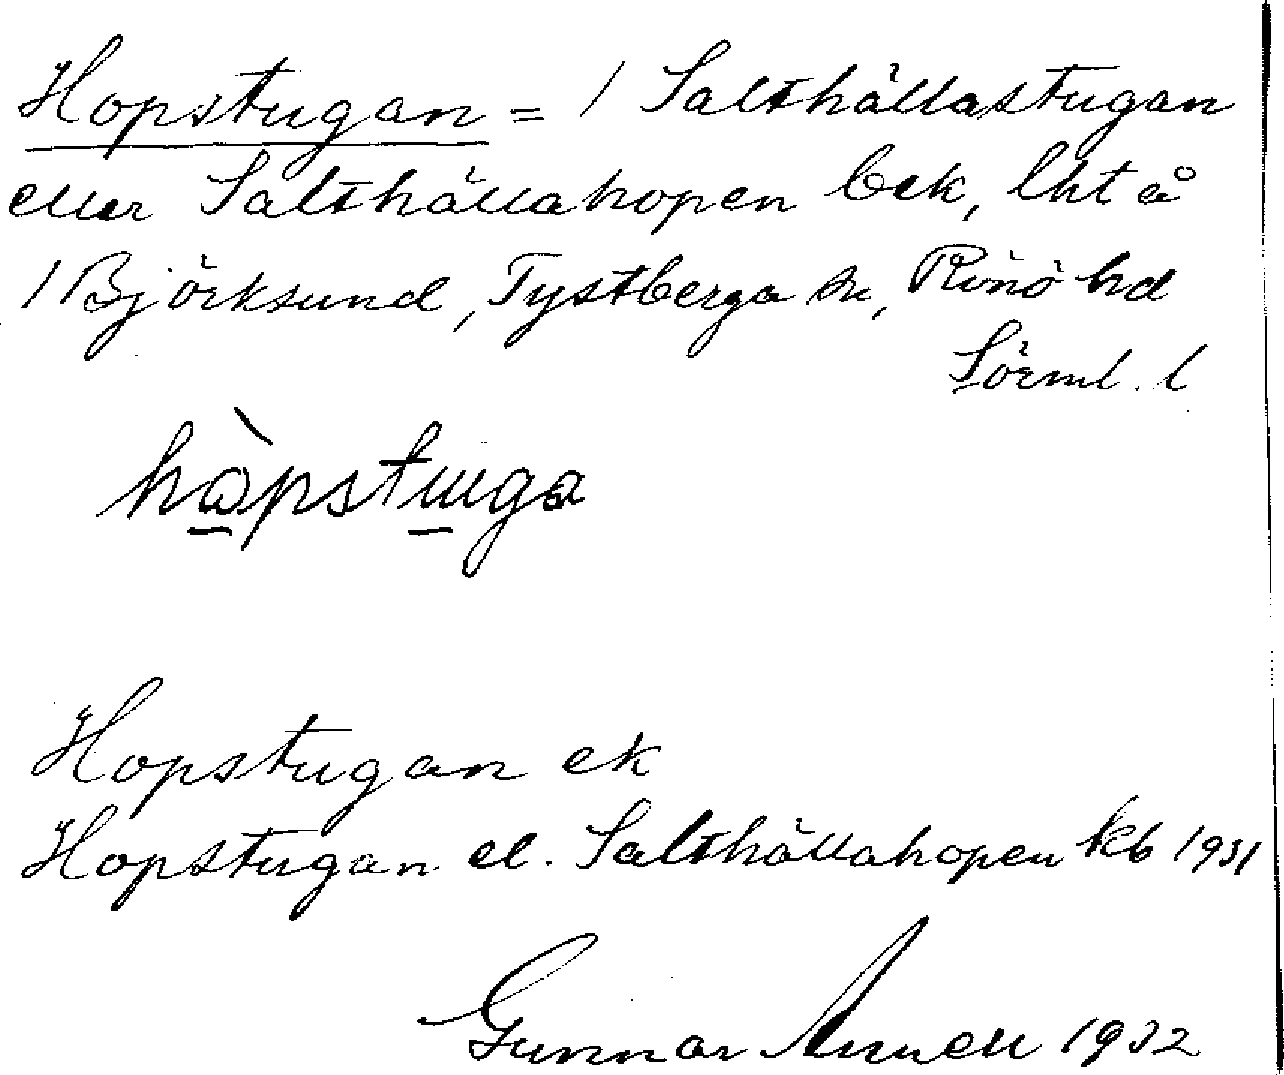 Hopstugan = / Salthällastugan
eller Salthällahopen bek, lht å
/ Björksund, Tystberga sn, Rönö hd
Sörml. l
hòpstuga
Hopstugan ek
Hopstugan el. Salthällahopen kb 1931
Gunnar Annell 1932